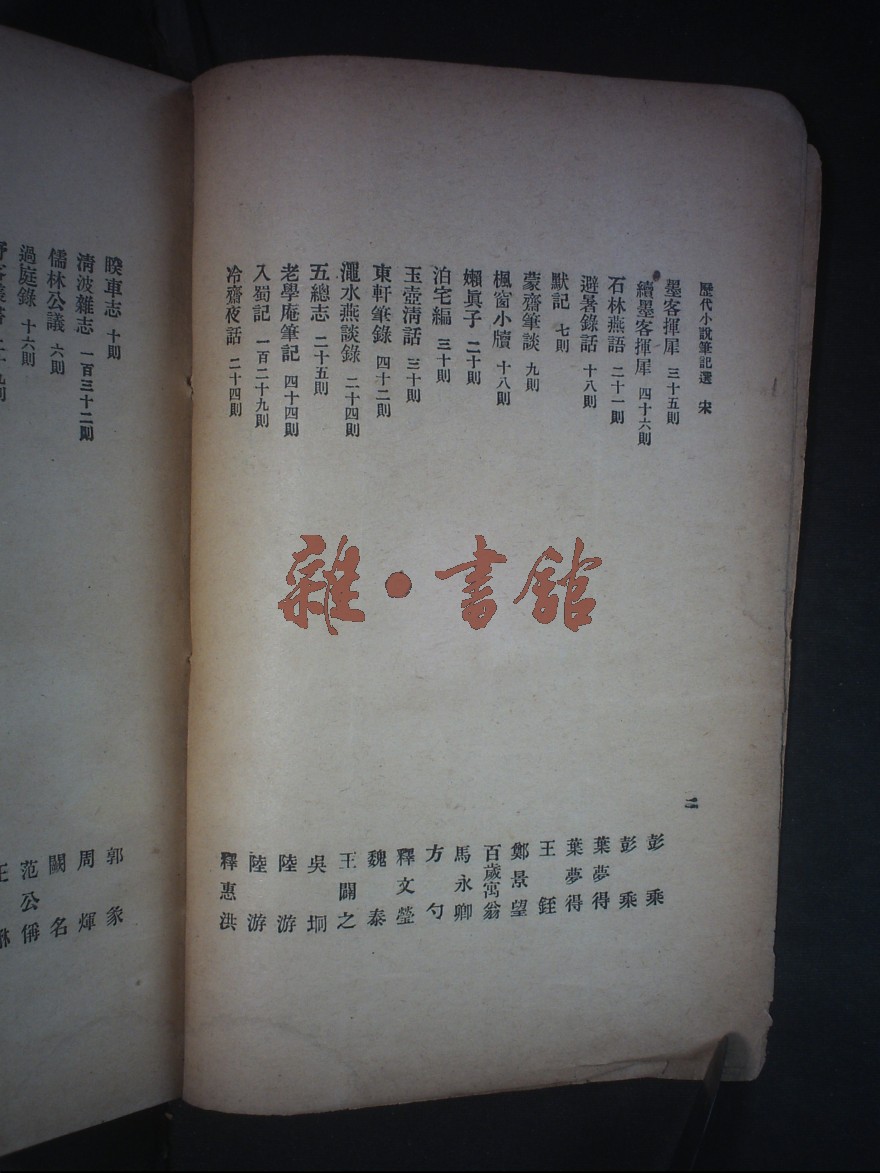 歷代小說筆記選 宋
墨客揮犀 三十五則 彭乘
續墨客揮犀 四十六則 彭乘
石林燕語 二十一則 葉夢得
避暑錄話 十八則 葉夢得
默記 七則 王銍
蒙齋筆談 九則 鄭景望
楓窗小牘 十八則 百歲寓翁
嬾眞子 二十則 馬永卿
泊宅編 三十則 方勺
玉壺清話 三十則 釋文瑩
東軒筆錄 四十二則 魏泰
澠水燕談錄 二十四則 王闢之
五總志 二十五則 吳坰
老學庵筆記 四十四則 陸游
入蜀記 一百二十九則 陸游
冷齋夜話 二十四則 釋惠洪
睽車志 十則 郭彖
清波雜志 一百三十二則 周煇
儒林公議 六則 闕名
過庭錄 十六則 范公偁
雜·書館